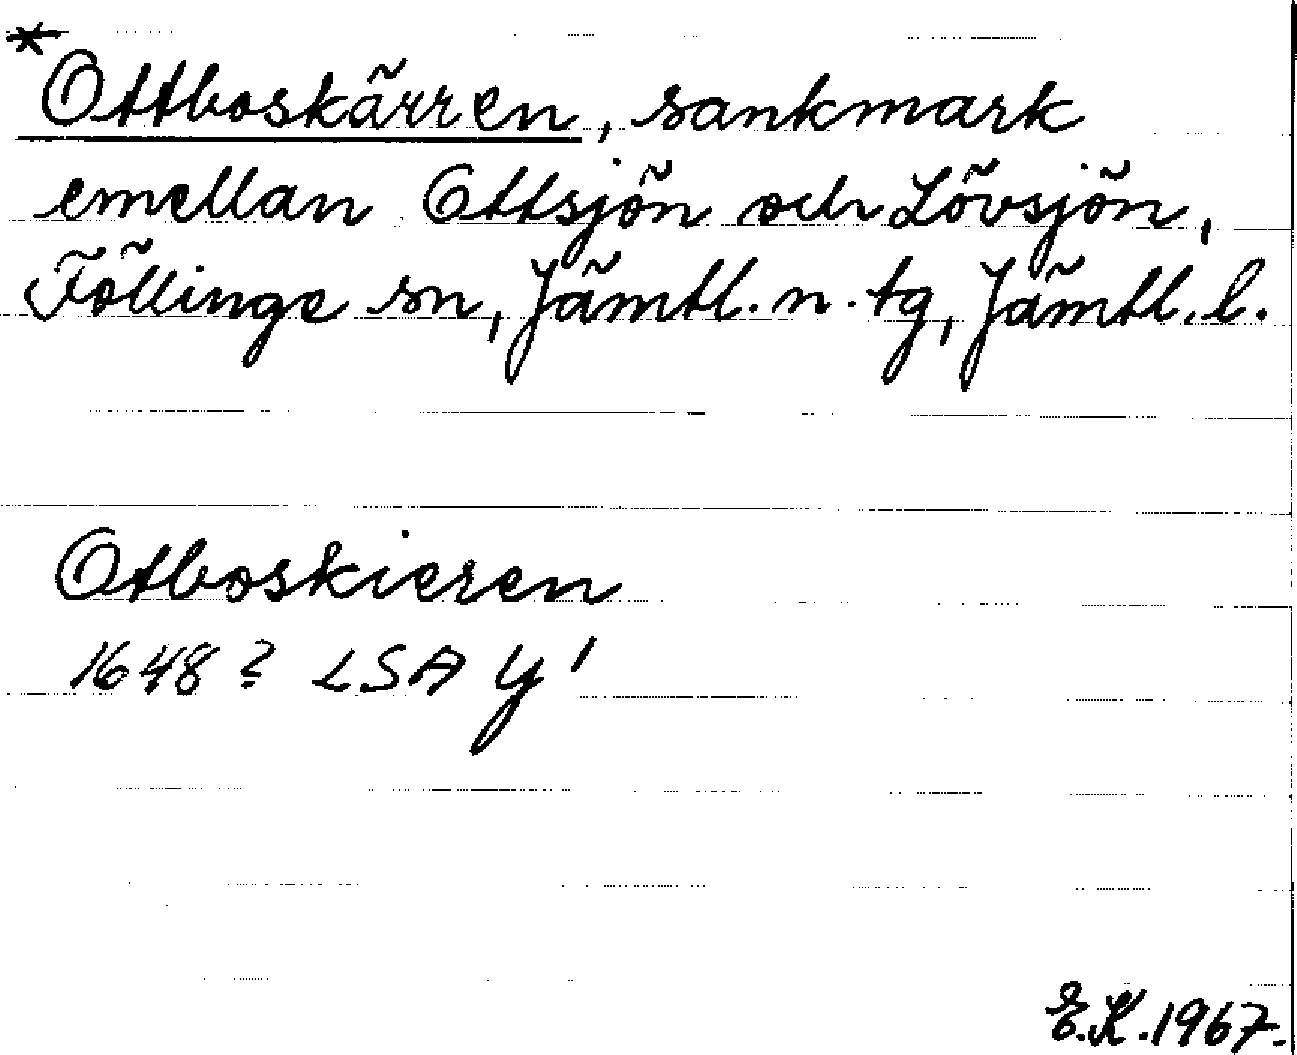 *Ottboskärren, sankmark
emellan Ottsjön och Lövsjön,
Föllinge sn, Jämtl. n. tg, Jämtl. l.
Otboskieren
1648? LSA Y 1
E.K. 1967.